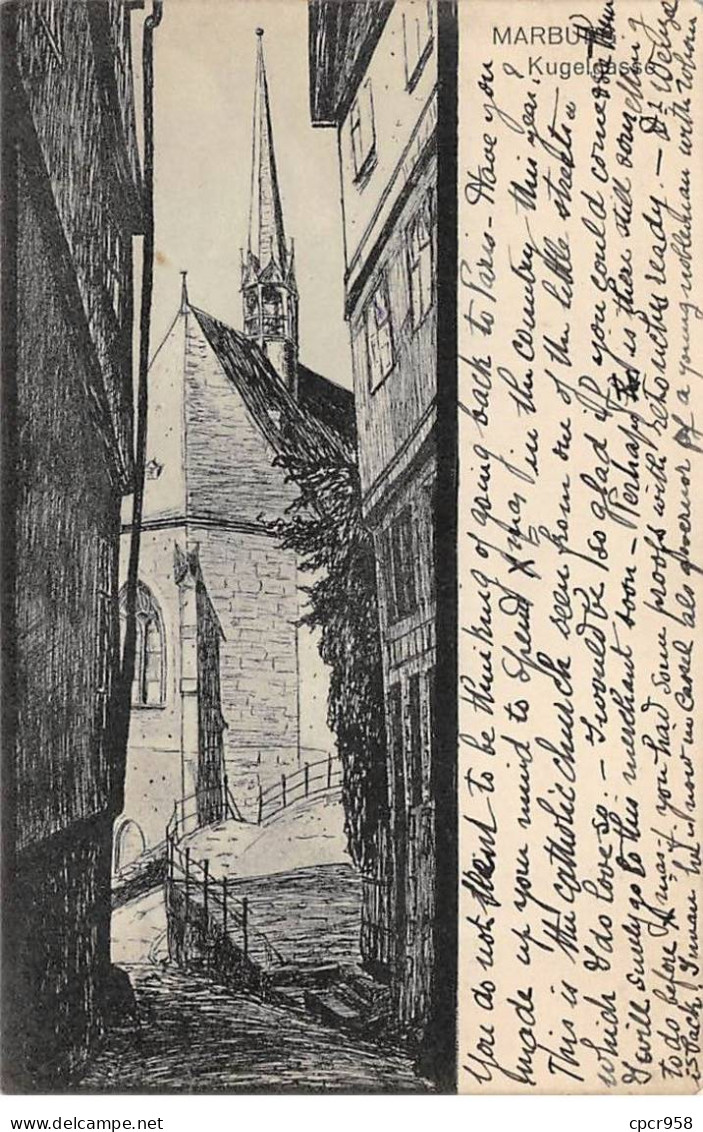 MARBURG
Kugelgasse
You do not want to be thinking of going back to Paris - Have you
made up your mind to spend Xmas in the country this year?
This is the catholic church seen from one of the little streets
which I do love so. - I would be so glad if you could come
I will surely go to this merchant soon - Perhaps is there still something
to do before Xmas if you had some proofs with retouches ready. -
is back, I mean he is now in Cassel als governor of a young nobleman with whom
cpcr958